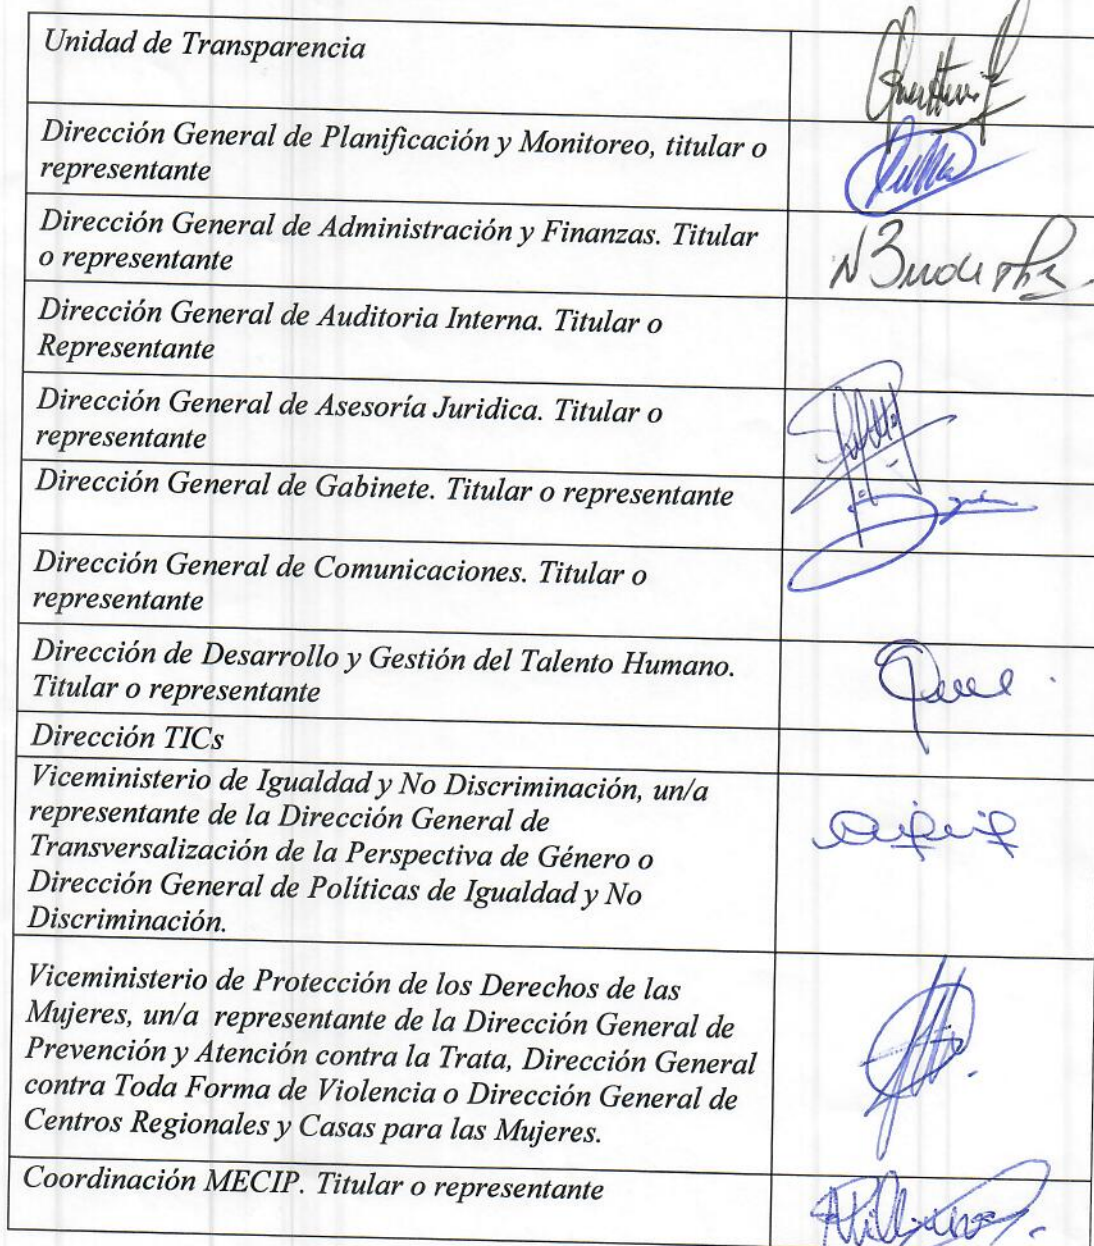 Unidad de Transparencia
Dirección General de Planificación y Monitoreo, titular o
representante
Dirección General de Administración y Finanzas. Titular
o representante
Dirección General de Auditoria Interna. Titular o
Representante
Dirección General de Asesoría Juridica. Titular o
representante
Dirección General de Gabinete. Titular o representante
Dirección General de Comunicaciones. Titular o
representante
Dirección de Desarrollo y Gestión del Talento Humano.
Titular o representante
Dirección TICs
Viceministerio de Igualdad y No Discriminación, un/a
representante de la Dirección General de
Transversalización de la Perspectiva de Género o
Dirección General de Políticas de Igualdad y No
Discriminación.
Viceministerio de Protección de los Derechos de las
Mujeres, un/a representante de la Dirección General de
Prevención y Atención contra la Trata, Dirección General
contra Toda Forma de Violencia o Dirección General de
Centros Regionales y Casas para las Mujeres.
Coordinación MECIP. Titular o representante